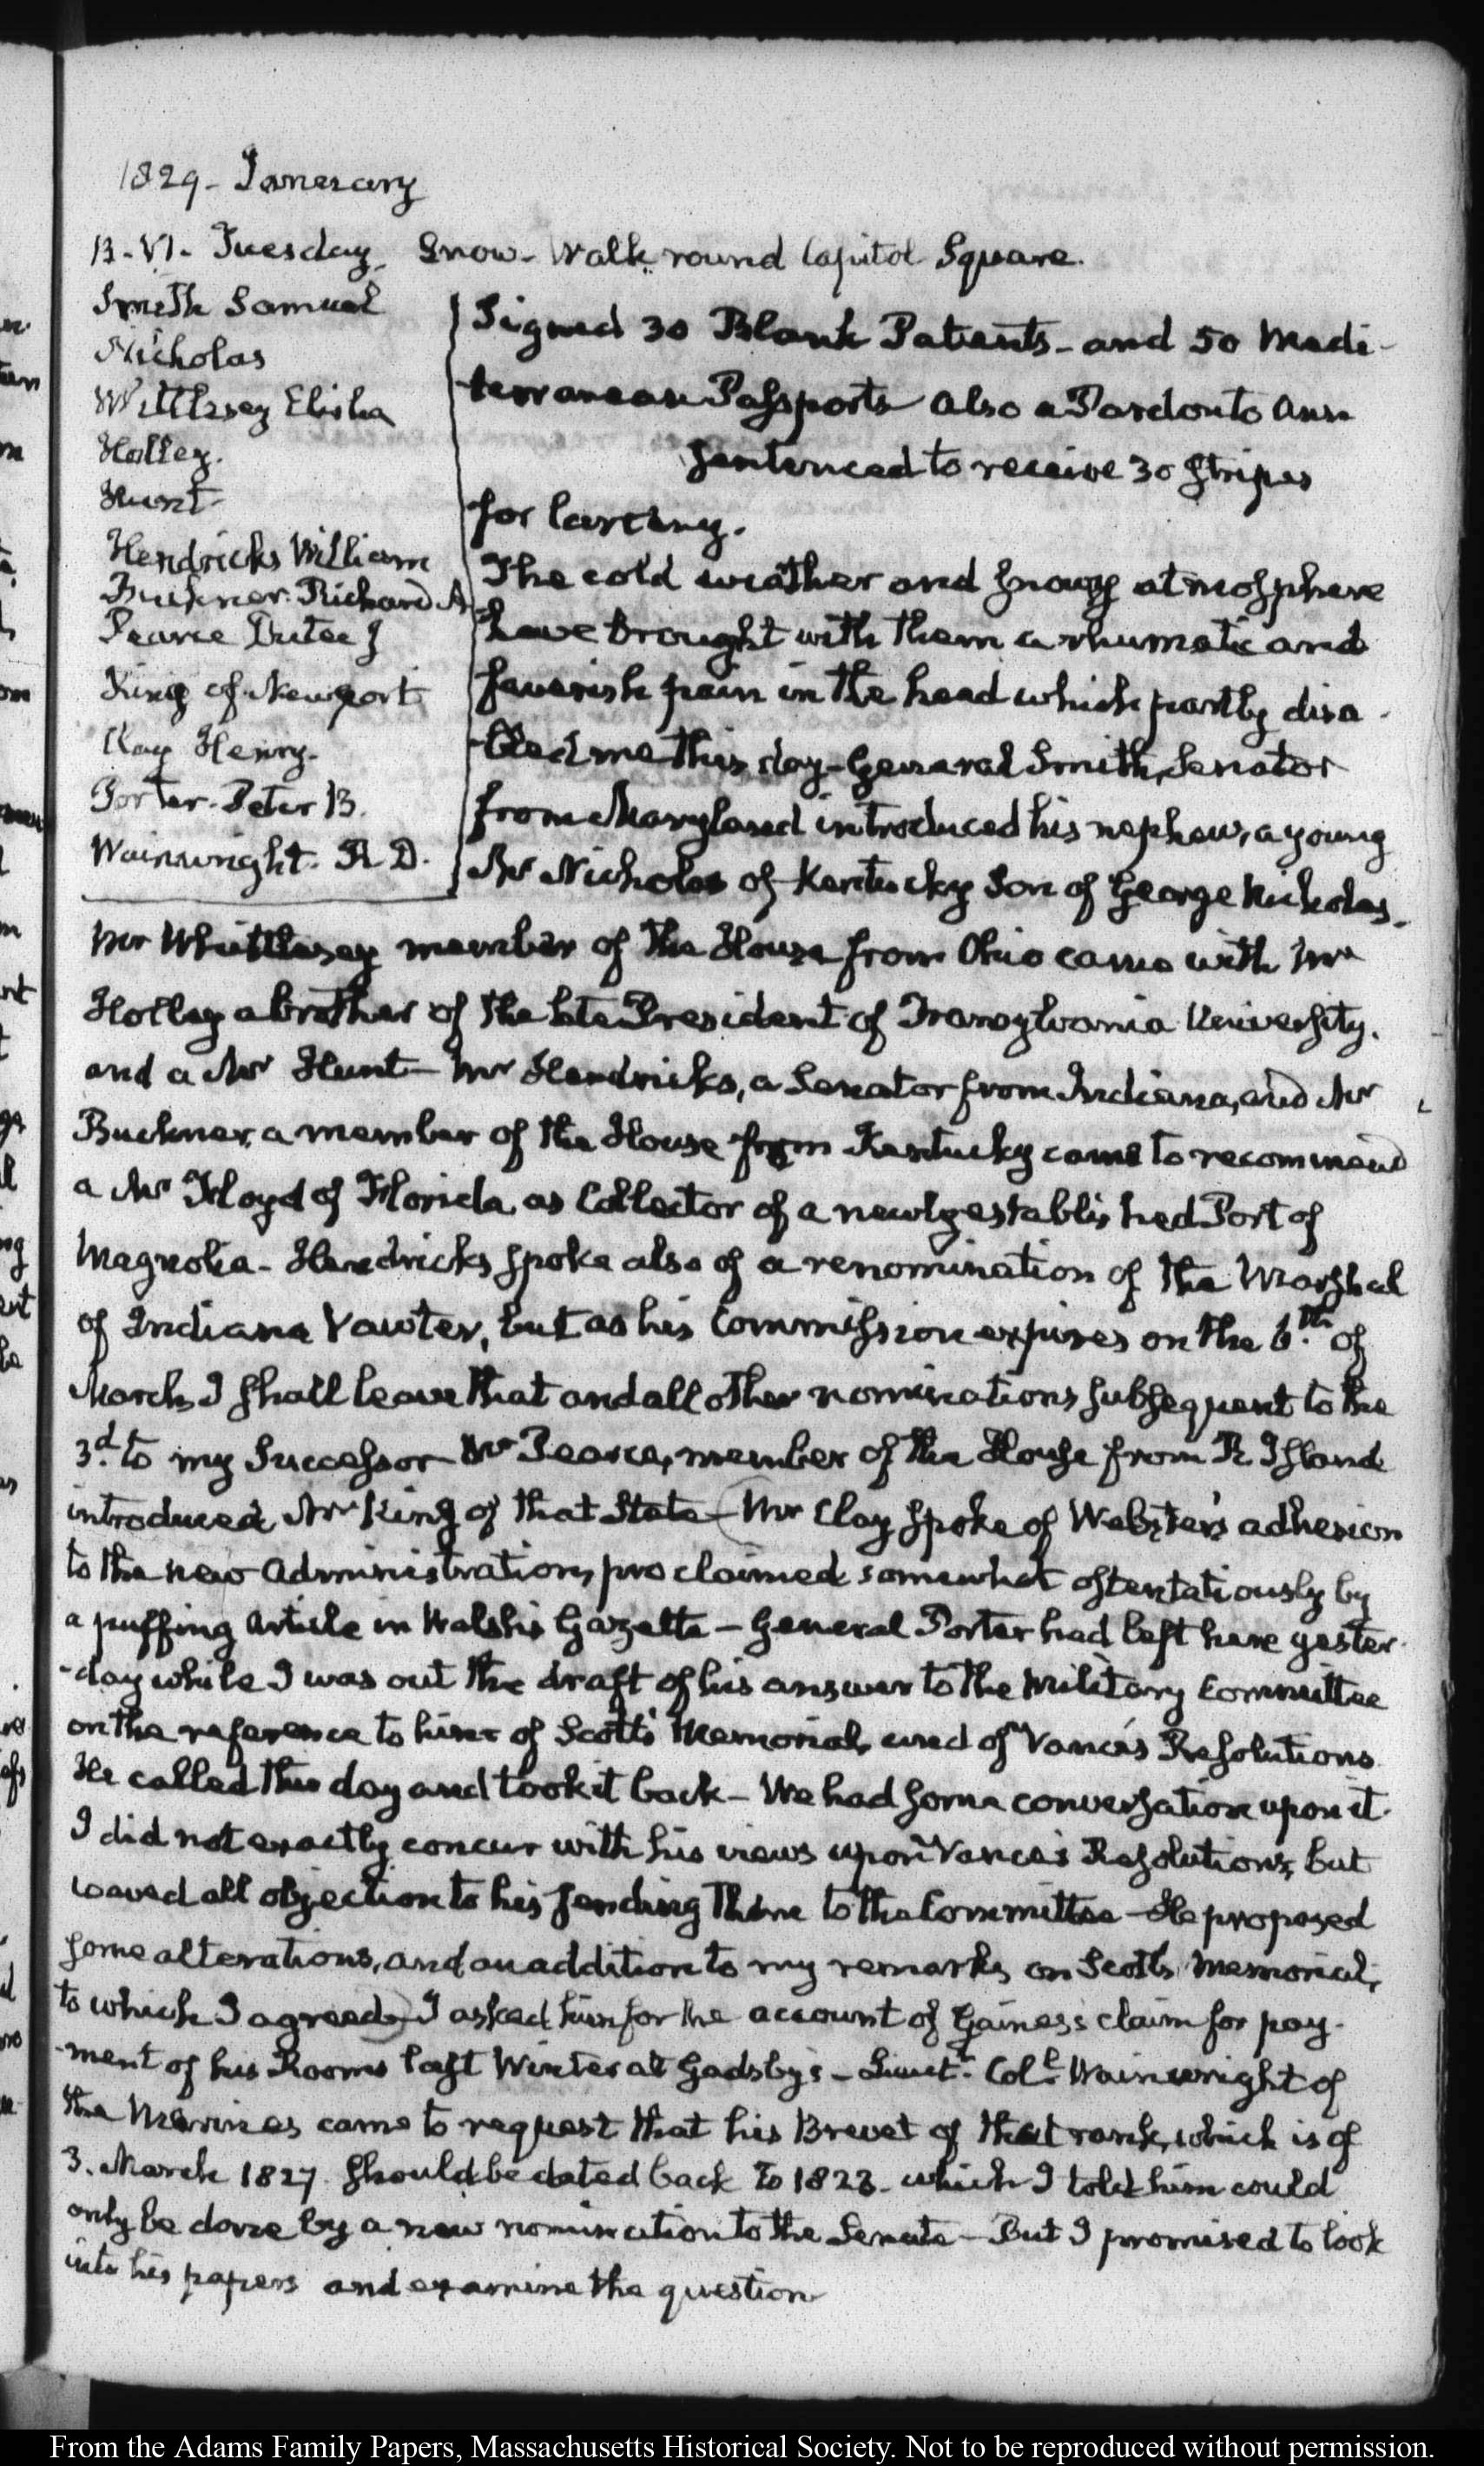 1829 - January
13. VI. Tuesday. Snow - Walk round Capitol Square.
Smith Samuel
Nicholas
Whittlesey Elisha
Holley.
Hunt
Hendricks William
Buckner. Richard A
Pearce Dutee J
King of Newport
Clay Henry.
Porter. Peter B.
Wainwright. R. D.
Signed 30 Blank Patents - and 50 Medi-
terranean Passports also a Pardon to Ann
sentenced to receive 30 stripes
for larceny.
The cold weather and snowy atmosphere
have brought with them a rhumatic and
feverish pain in the head which partly disa-
-bled me this day - General Smith, Senator
from Maryland introduced his nephew, a young
Mr Nicholas of Kentucky Son of George Nicholas.
Mr Whittlesey member of the House from Ohio came with Mr
Holley a brother of the late President of Transylvania University.
and a Mr Hunt - Mr Hendricks, a Senator from Indiana, and Mr
Buckner, a member of the House from Kentucky came to recommend
a Mr Floyd of Florida as Collector of a newly established Port of
Magnolia - Hendricks spoke also of a renomination of the Marshal
of Indiana Vawter, but as his Commission expires on the 6.th of
March, I shall leave that and all other nominations subsequent to the
3.d to my Successor - Mr Pearce, member of the House from R. Island
introduced Mr King of that State - (Mr Clay spoke of Webster's adhesion
to the new Administration, proclaimed somewhat ostentatiously by
a puffing Article in Walsh's Gazette - General Porter had left here yester-
-day while I was out the draft of his answer to the Military Committee
on the reference to him of Scott's Memorial, and of Vance's Resolutions
He called this day and took it back - We had some conversation upon it.
I did not exactly concur with his views upon Vance's Resolutions, but
waved all objection to his sending them to the Committee - He proposed
some alterations, and an addition to my remarks on Scott's Memorial,
to which I agreed.) I asked him for the account of Gaines's claim for pay-
-ment of his Rooms last Winter at Gadsby's - Lieut.t Col.l Wainwright of
the Marines came to request that his Brevet of that rank, which is of
3. March 1827. should be dated back to 1823. which I told him could
only be done by a new nomination to the Senate - But I promised to look
into his papers and examine the question
From the Adams Family Papers, Massachusetts Historical Society. Not to be reproduced without permission.